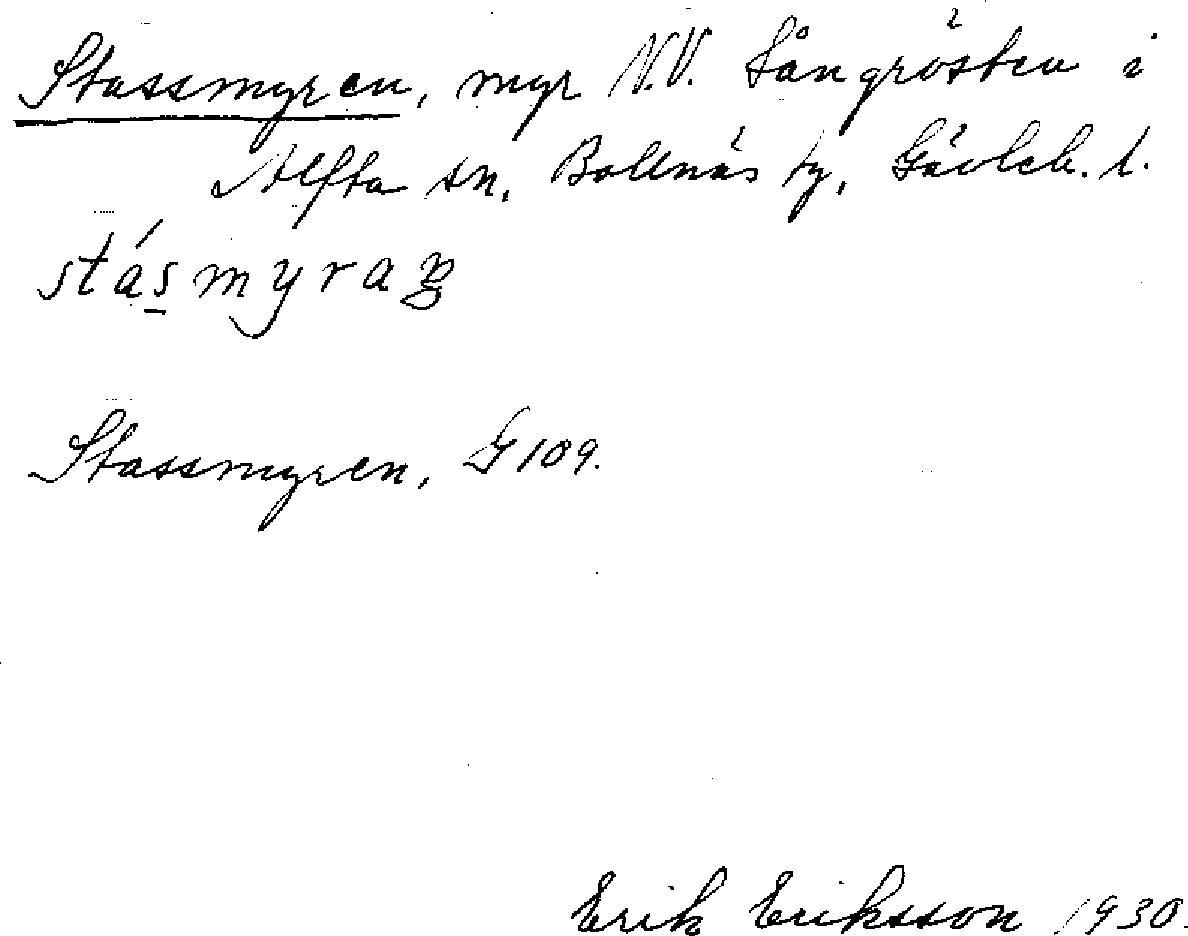 Stassmyren, myr N.V. Långrösten i
Alfta sn, Bollnäs tg, Gävleb. l.
stásmyraŋ
Stassmyren, G 109.
Erik Eriksson 1930.